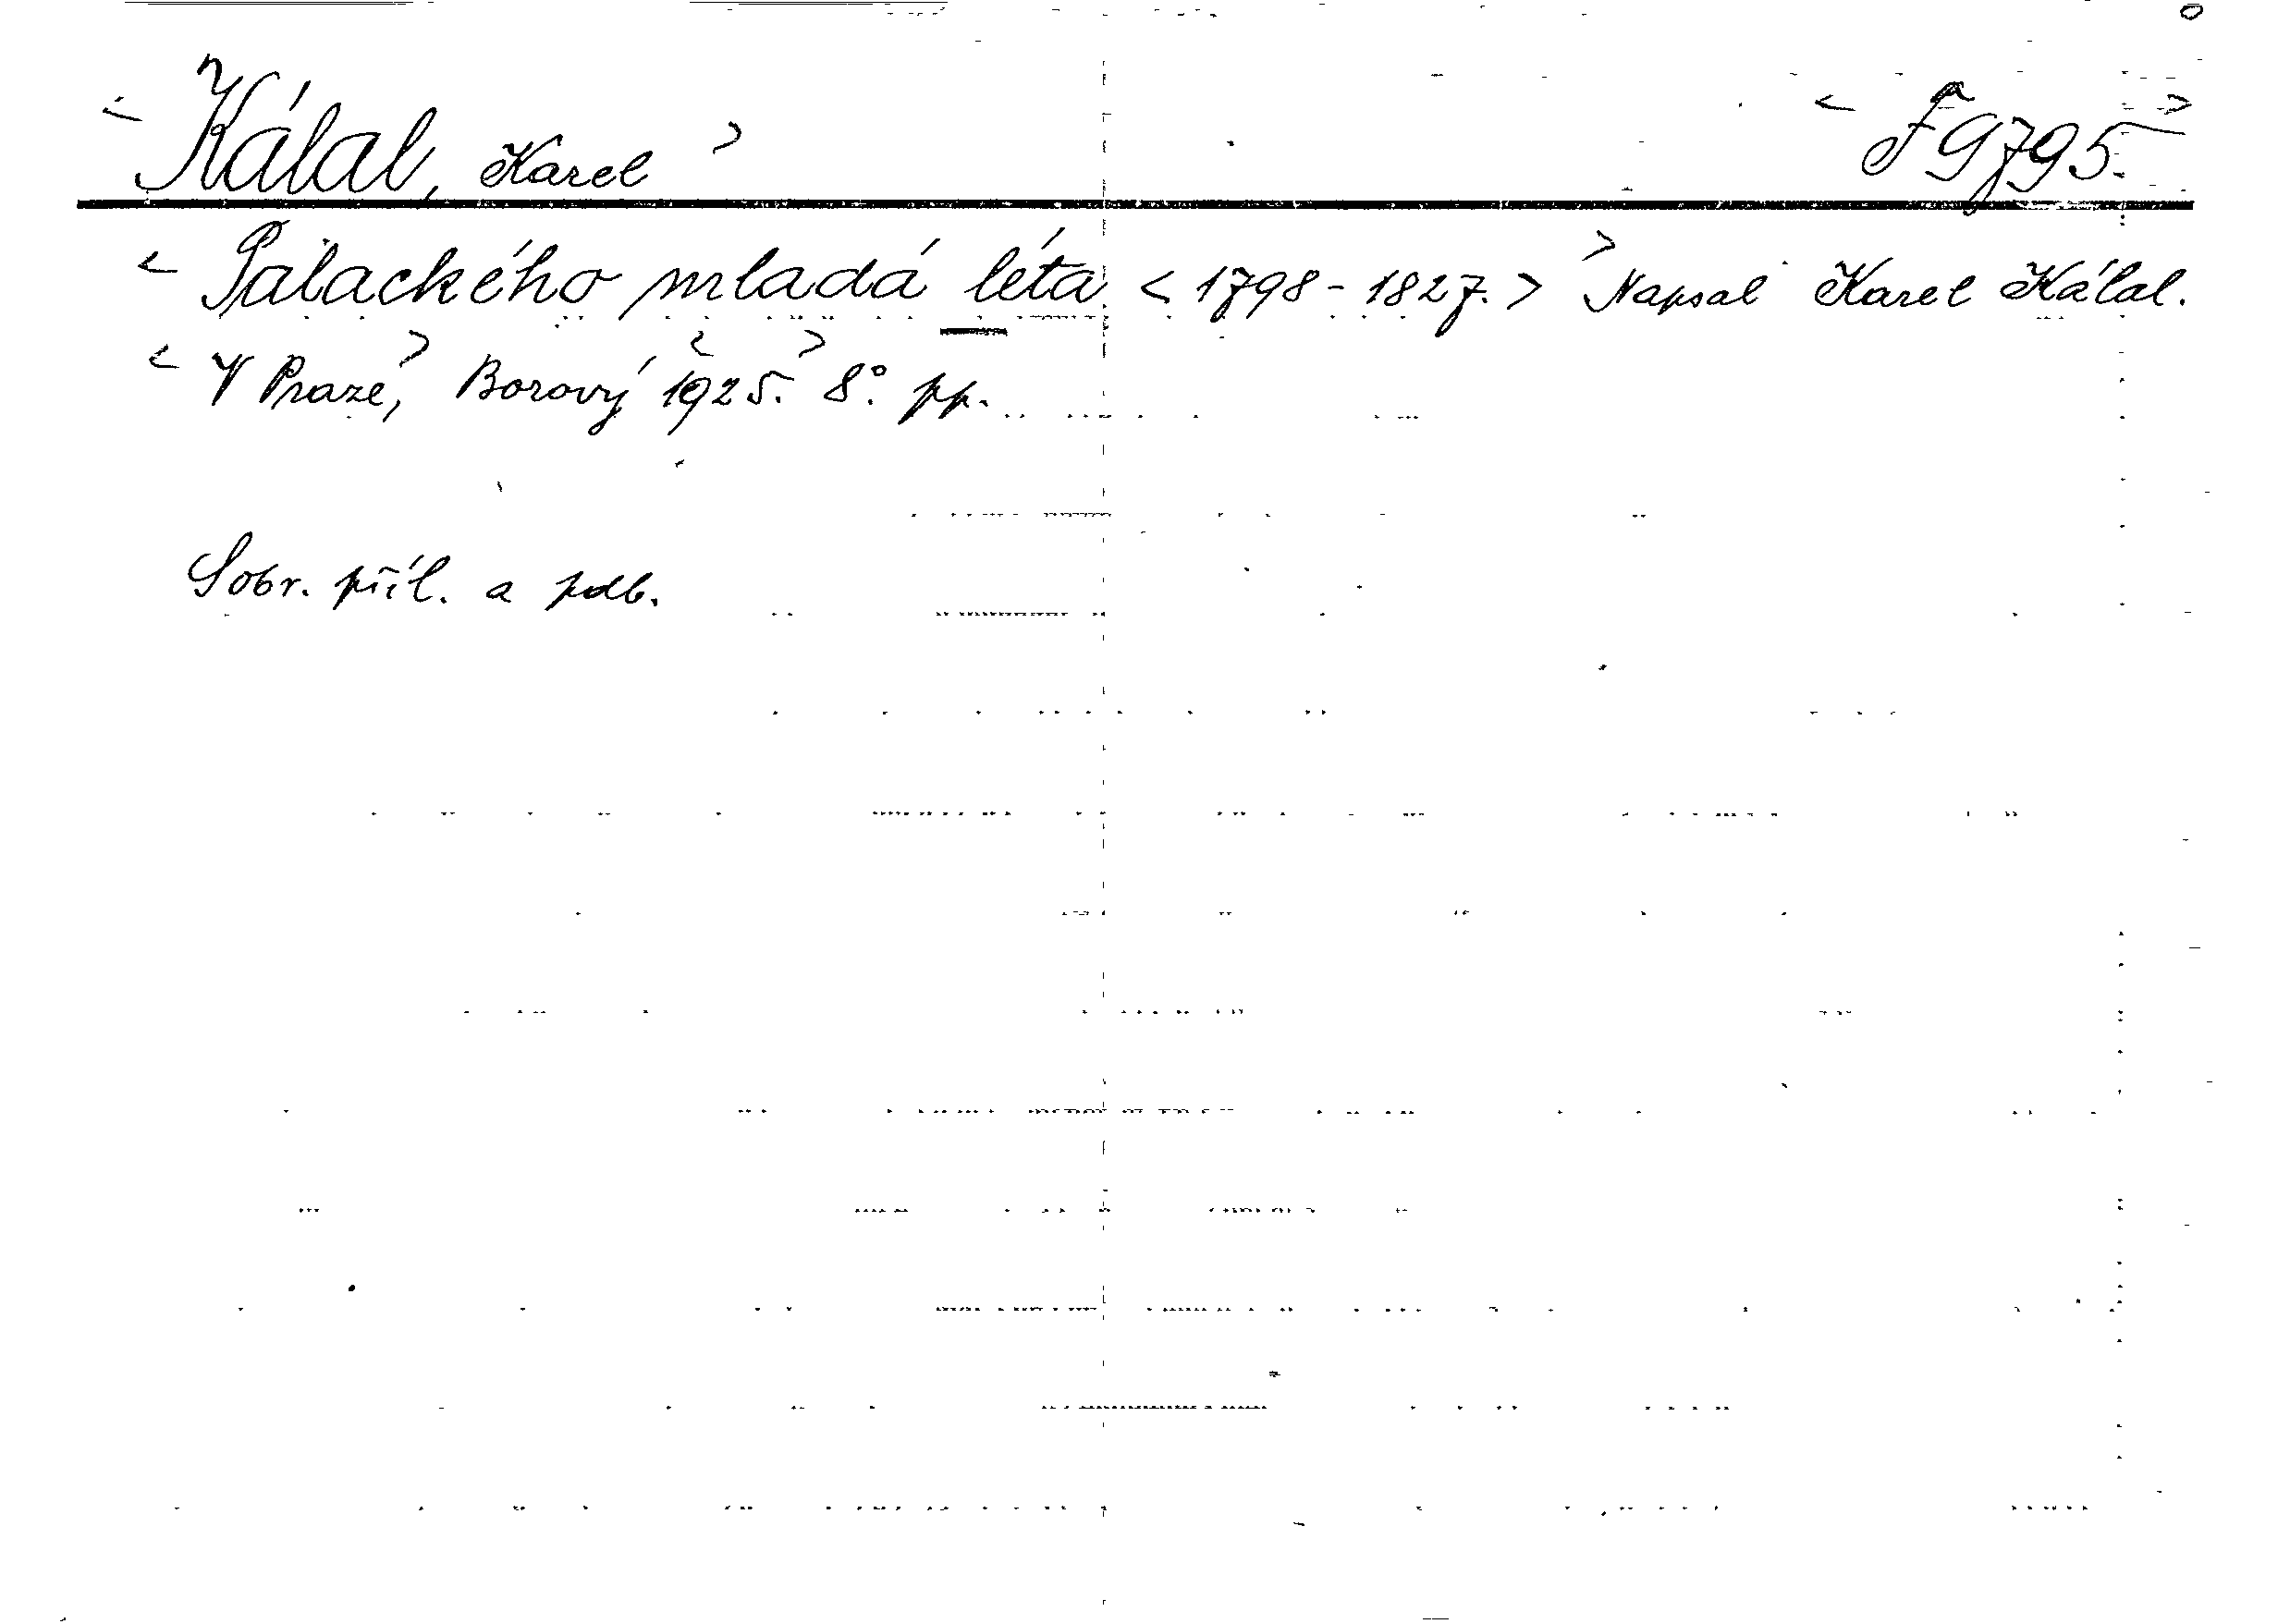 < Kálal, Karel > < F 9795. >
< Palackého mladá léta < 1798 - 1827. > > Napsal Karel Kálal.
< V Praze, > Borový < 1925. > 8°. pp.
S obr. příl. a pdb.